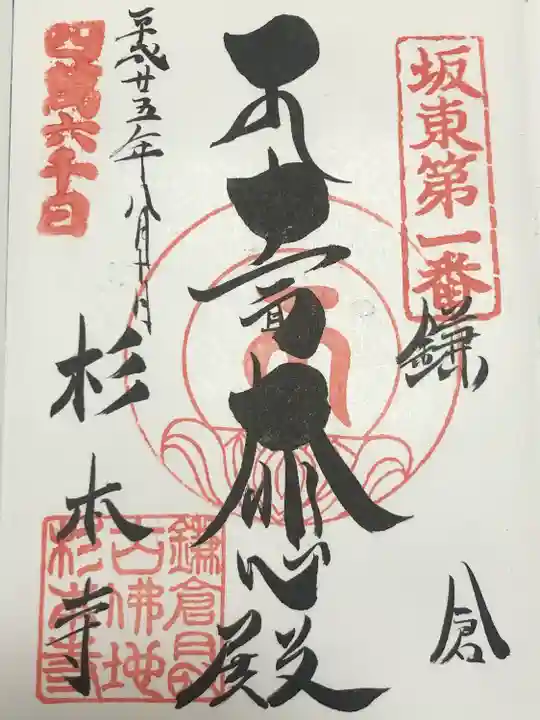 坂東第一番
鎌倉
十一面大悲殿
平成廿五年八月十日
杉本寺
四萬六千日
鎌倉最
古佛地
杉本寺